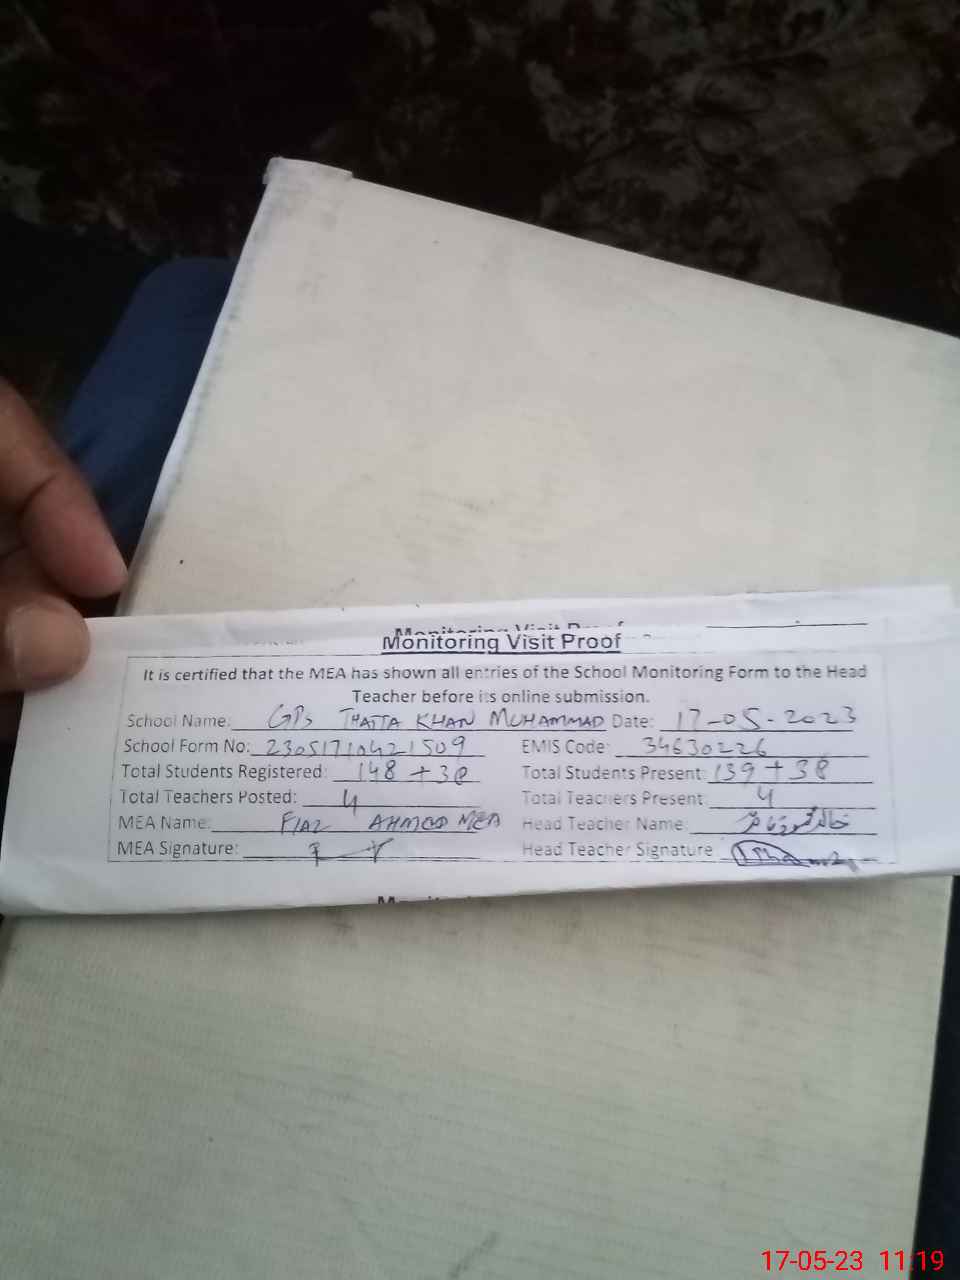 Monitoring Visit Proof
It is certified that the MEA has shown all entries of the School Monitoring Form to the Head
Teacher before its online submission.
School Name: GPS THATTA KHAN MUHAMMAD Date: 17-05-2023
School Form No: 230517104 21509 EMIS Code: 34630226
Total Students Registered: 148 + 38 Total Students Present: 139 + 38
Total Teachers Posted: 4 Total Teachers Present: 4
MEA Name: FIAZ AHMED MEA Head Teacher Name:
MEA Signature: Head Teacher Signature
17-05-23 11:19